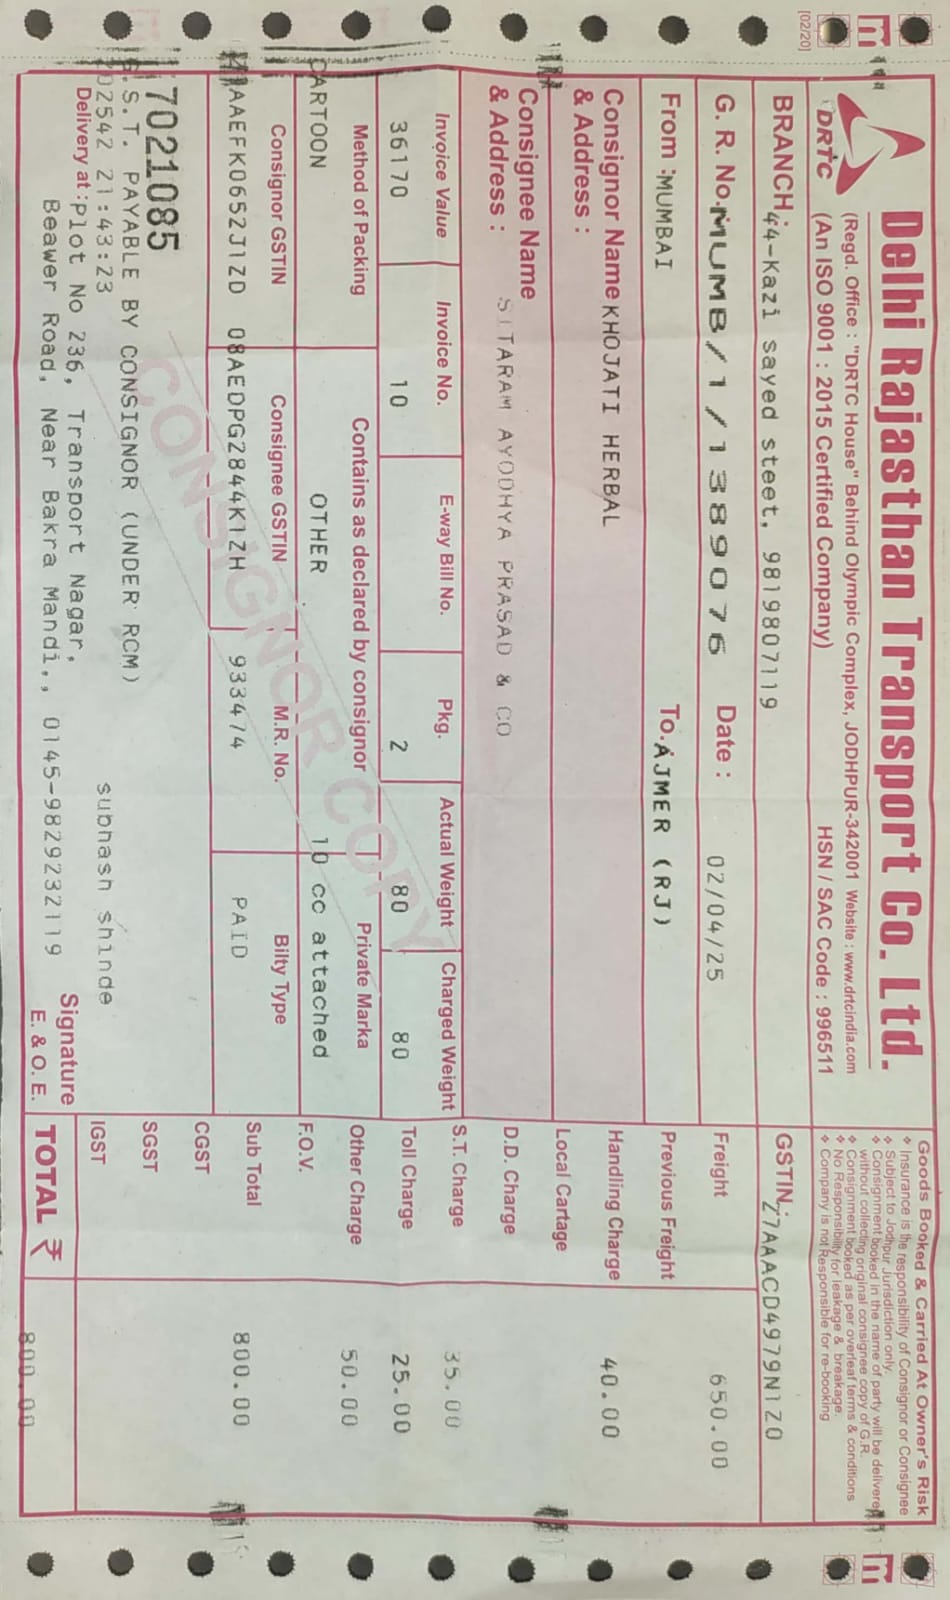 [02/20]
DRTC
Delhi Rajasthan Transport Co. Ltd.
(Regd. Office : "DRTC House" Behind Olympic Complex, JODHPUR-342001 Website : www.drtcindia.com
(An ISO 9001 : 2015 Certified Company) HSN / SAC Code : 996511
Goods Booked & Carried At Owner's Risk
❖ Insurance is the responsibility of Consignor or Consignee
❖ Subject to Jodhpur Jurisdiction only.
❖ Consignment booked in the name of party will be delivered
without collecting original consignee copy of G.R.
❖ Consignment booked as per overleaf terms & conditions
❖ No Responsibility for leakage & breakage.
❖ Company is not Responsible for re-booking
BRANCH: 44-Kazi sayed steet, 9819807119
GSTIN: 27AAACD4979N1Z0
G. R. No. MUMB/1/1389076 Date : 02/04/25
Freight 650.00
From : MUMBAI To. AJMER (RJ)
Previous Freight
Consignor Name KHOJATI HERBAL
& Address :
Handling Charge 40.00
Local Cartage
Consignee Name SITARAM AYODHYA PRASAD & CO
& Address :
D.D. Charge
Invoice Value Invoice No. E-way Bill No. Pkg. Actual Weight Charged Weight
S.T. Charge 35.00
36170 10 2 80 80
Toll Charge 25.00
Method of Packing Contains as declared by consignor Private Marka
Other Charge 50.00
CARTOON OTHER 10 cc attached
F.O.V.
Consignor GSTIN Consignee GSTIN M.R. No. Bilty Type
Sub Total 800.00
AAEFK0652J1ZD 08AEDPG2844K1ZH 933474 PAID
CGST
CONSIGNOR COPY
7021085
SGST
S.T. PAYABLE BY CONSIGNOR (UNDER RCM)
02542 21:43:23 subhash shinde
IGST
Delivery at : plot No 236, Transport Nagar,
Beawer Road, Near Bakra Mandi,, 0145-9829232119
Signature
E. & O. E.
TOTAL ₹ 800.00